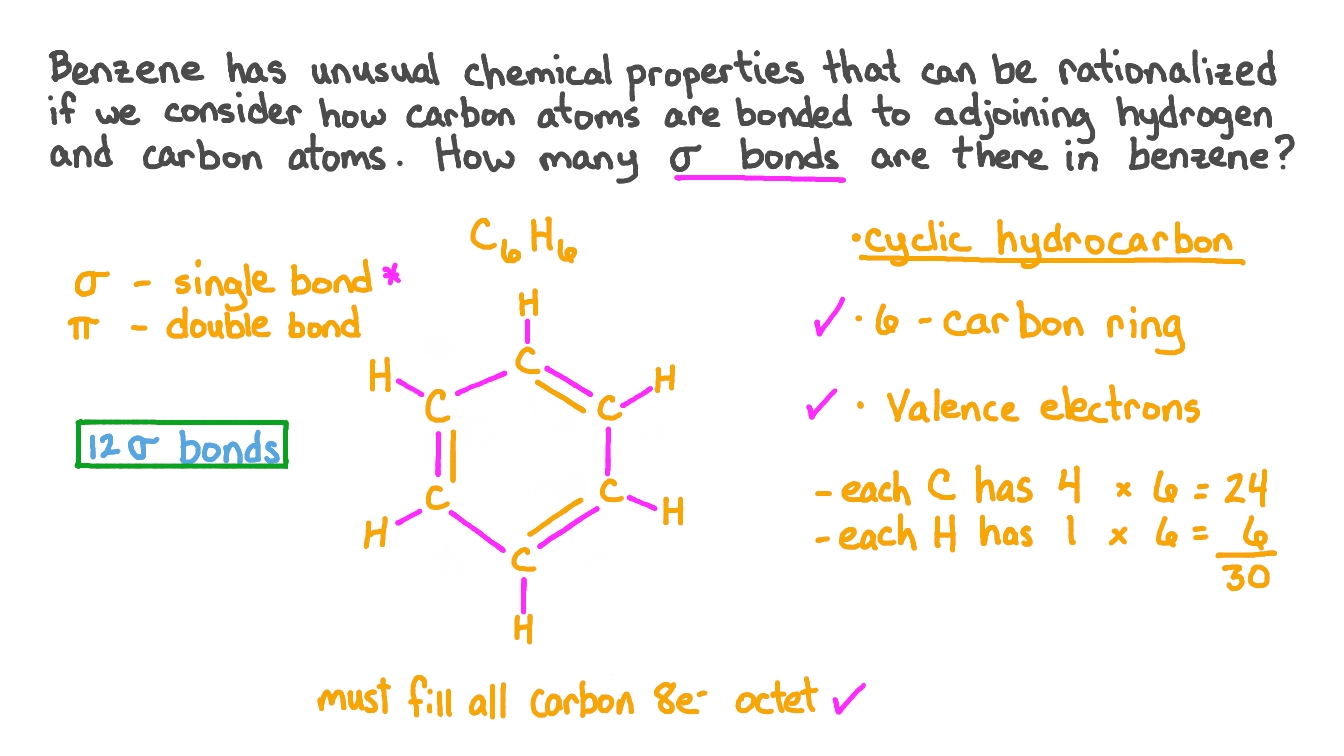 Benzene has unusual chemical properties that can be rationalized
if we consider how carbon atoms are bonded to adjoining hydrogen
and carbon atoms. How many σ bonds are there in benzene?
C₆H₆
σ - single bond*
π - double bond
12 σ bonds
H
H
C
H
C
C
C
C
H
H
C
H
must fill all carbon 8e⁻ octet ✓
· cyclic hydrocarbon
✓ · 6 - carbon ring
✓ · Valence electrons
- each C has 4 × 6 = 24
- each H has 1 × 6 = 6
30